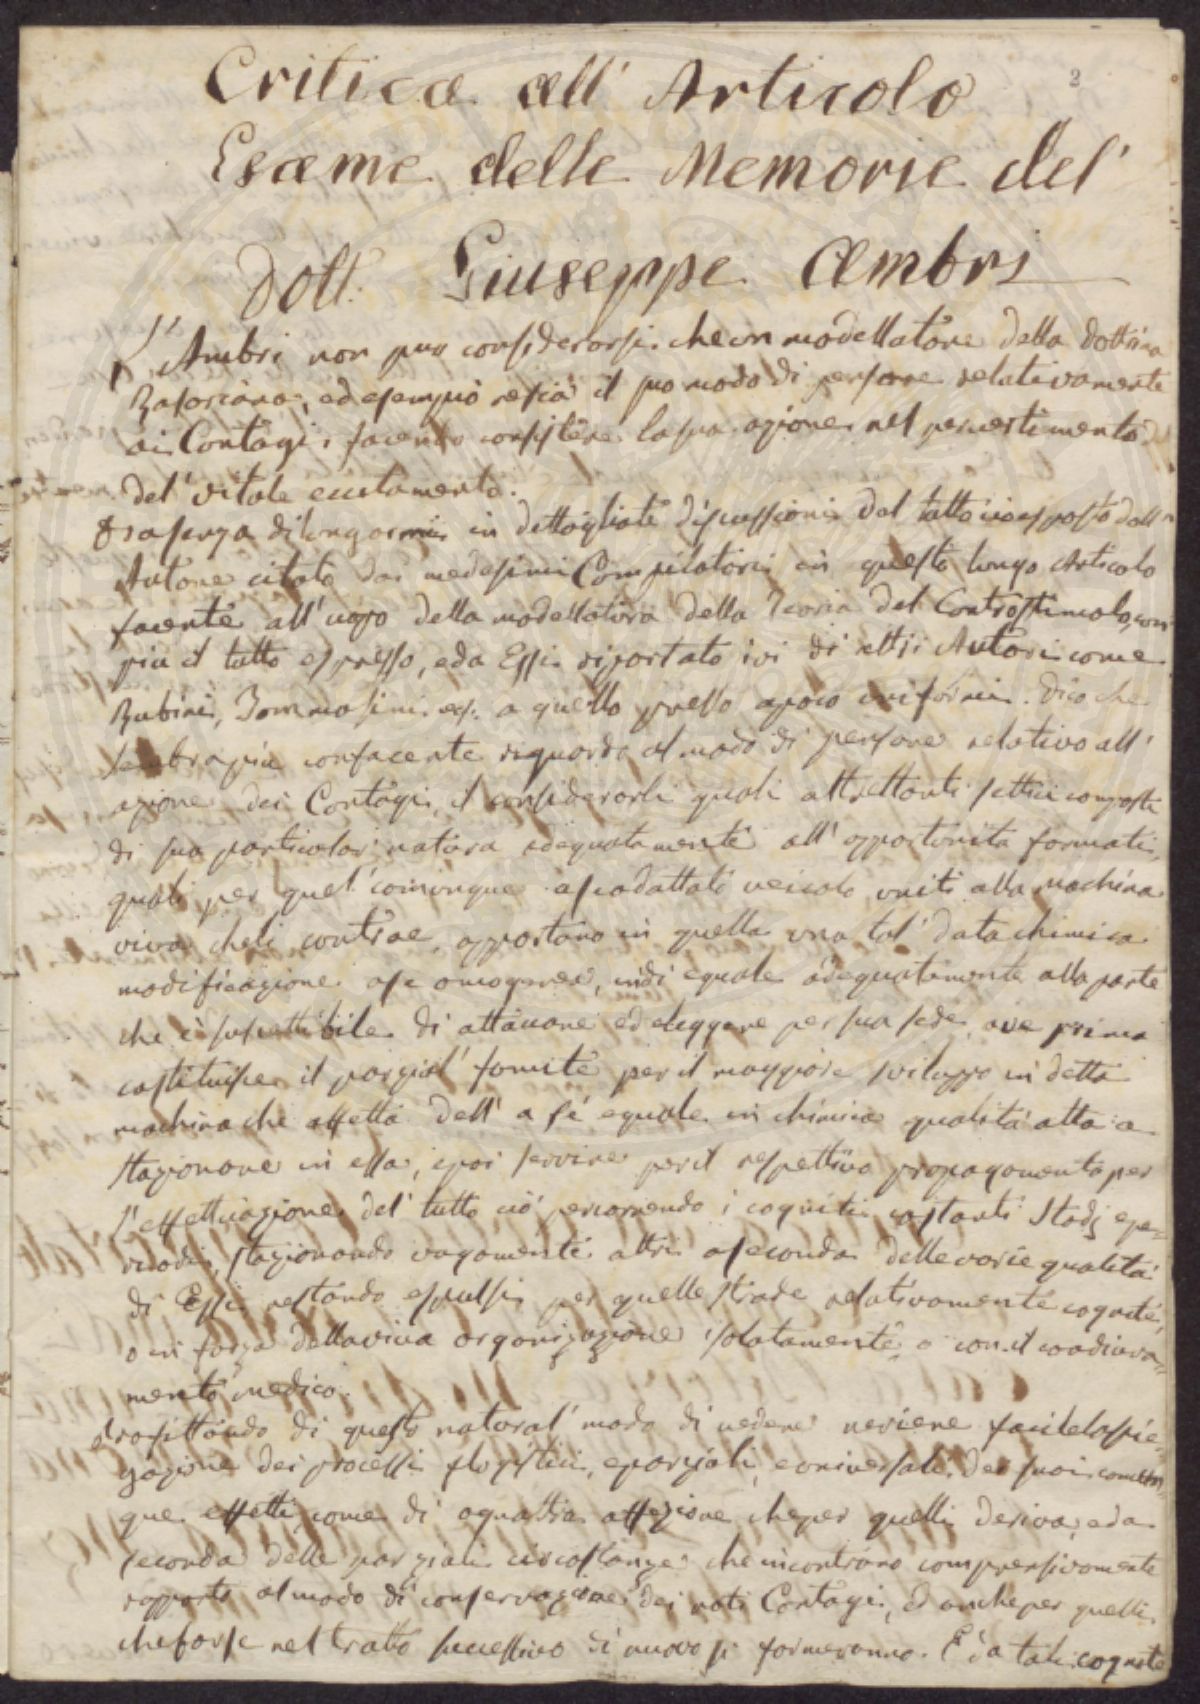 2
Critica all' Articolo
Esame delle Memorie del'
Dott. Giuseppe Ambri
L'Ambri non può considerarsi che un modellatore della Dottrina
Rasoriana, ed il suo modo di pensare relativamente
ai Contagi, facendo consistere la sua azione nel pervertimento
del' vitale eccitamento.
senza dilungarmi in dettagliate discussioni del tutto ivi esposto dall'
Autore citato dai medesimi Compilatori in questo lungo Articolo
facente all'uopo della modellatura della Teoria del Controstimolo, con
più il tutto espresso, e da Essi riportato ivi di altri Autori come
Rubini, Tommasini ec. a quello presso a poco uniformi. Dico che
sembra più confacente riguardo al modo di pensare relativo all'
azione dei Contagi, il considerarli quali altrettanti settici composti
di sua particolar' natura adeguatamente all' opportunità formati,
quali per quel' comunque a se adattato veicolo uniti alla machina
viva che li contrae, apportano in quella una tal' data chimica
modificazione a se omogenea, indi eguale adeguatamente alla parte
che è suscettibile di attaccare ed eleggere per sua sede, ove prima
costituisce il parzial' fomite per il maggiore sviluppo in detta
machina che affetta dell' a sé eguale in chimica qualità atta a
stazionare in essa, e poi servire per il respettivo propagamento per
l'effettuazione del' tutto ciò percorrendo i cogniti costanti Stadj e pe-
riodi, stazionando vagamente altri a seconda delle varie qualità
di Essi restando espulsi per quelle strade relativamente cognite,
o in forza della viva organizazione isolatamente, o con il coadiuva-
mento medico.
Profittando di questo natural' modo di vedere ne viene facile la spie-
gazione dei processi flogistici, e parziali, e universali, dei suoi comun-
que effetti, come di ogn'altra affezione che per quelli deriva, e da
seconda delle parziali circostanze che incontrano comprensivamente
rapporto al modo di conservazione dei noti Contagi, ed anche per quelli
che forse nel tratto successivo di nuovo si formeranno. E da tali cognite